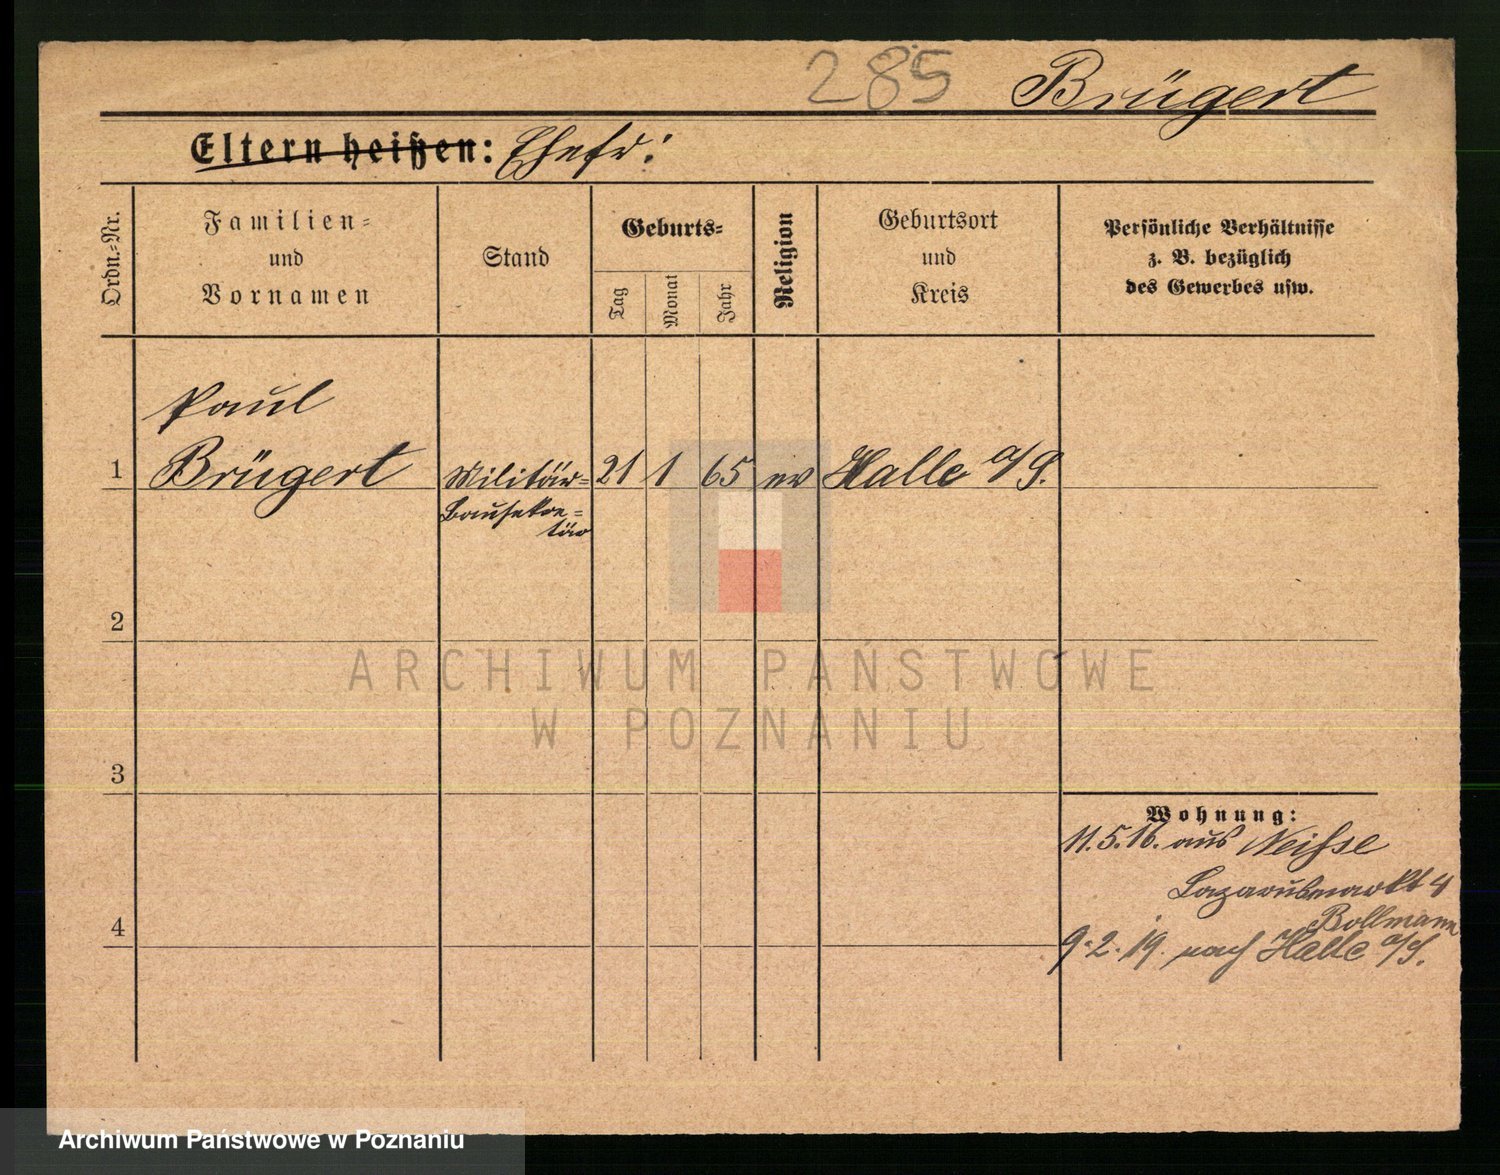 285 Brügert
Eltern heißen: Ehefr:
Ordn.-Nr.
Familien-
und
Vornamen
Stand
Geburts-
Tag
Monat
Jahr
Religion
Geburtsort
und
Kreis
Persönliche Verhältnisse
z. B. bezüglich
des Gewerbes usw.
Paul
1 Brügert Militär- 21 1 65 ev Halle a/S.
Bausekre-
tär
2
ARCHIWUM PAŃSTWOWE
W POZNANIU
3
Wohnung:
11.5.16. aus Neisse
Lazarusmarkt 4
Bollmann
4
9.2.19. nach Halle a/S.
Archiwum Państwowe w Poznaniu